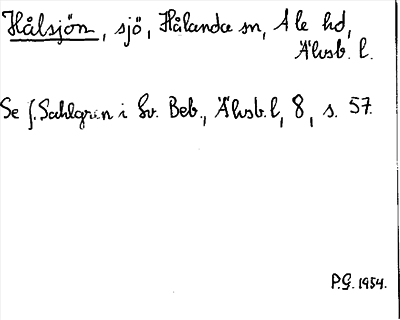 Hålsjön, sjö, Hålanda sn, Ale hd,
Älvsb. l.
Se J. Sahlgren i Sv. Beb., Älvsb. l, 8, s. 57.
P.G. 1954.